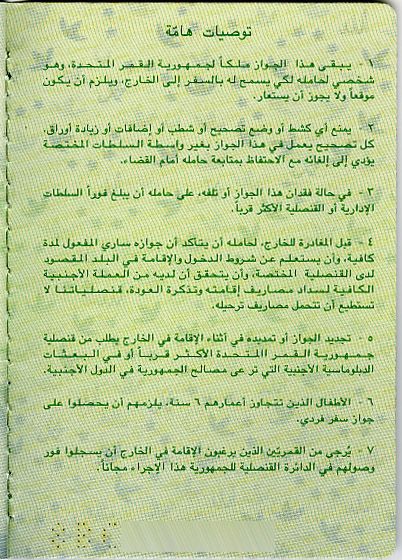 توصيات هامّة
١ - يبقى هذا الجواز ملكاً لجمهورية القمر المتحدة، وهو
شخصي لحامله لكي يسمح له بالسفر إلى الخارج، ويلزم أن يكون
موقعاً ولا يجوز أن يستعار.
٢ - يمنع أي كشط أو وضع تصحيح أو شطب أو إضافات أو زيادة أوراق.
كل تصحيح يعمل في هذا الجواز بغير واسطة السلطات المختصة
يؤدي إلى إلغائه مع الاحتفاظ بمتابعة حامله أمام القضاء.
٣ - في حالة فقدان هذا الجواز أو تلفه، على حامله أن يبلغ فوراً السلطات
الإدارية أو القنصلية الأكثر قرباً.
٤ - قبل المغادرة للخارج، لحامله أن يتأكد أن جوازه ساري المفعول لمدة
كافية، وأن يستعلم عن شروط الدخول والإقامة في البلد المقصود
لدى القنصلية المختصة، وأن يتحقق أن لديه من العملة الأجنبية
الكافية لسداد مصاريف إقامته وتذكرة العودة، قنصلياتنا لا
تستطيع أن تتحمل مصاريف ترحيله.
٥ - تجديد الجواز أو تمديده في أثناء الإقامة في الخارج يطلب من قنصلية
جمهورية القمر المتحدة الأكثر قرباً أو في البعثات
الدبلوماسية الأجنبية التي ترعى مصالح الجمهورية في الدول الأجنبية.
٦ - الأطفال الذين تتجاوز أعمارهم ٦ سنة، يلزمهم أن يحصلوا على
جواز سفر فردي.
٧ - يُرجى من القمريّين الذين يرغبون الإقامة في الخارج أن يسجلوا فور
وصولهم في الدائرة القنصلية للجمهورية هذا الإجراء مجاناً.